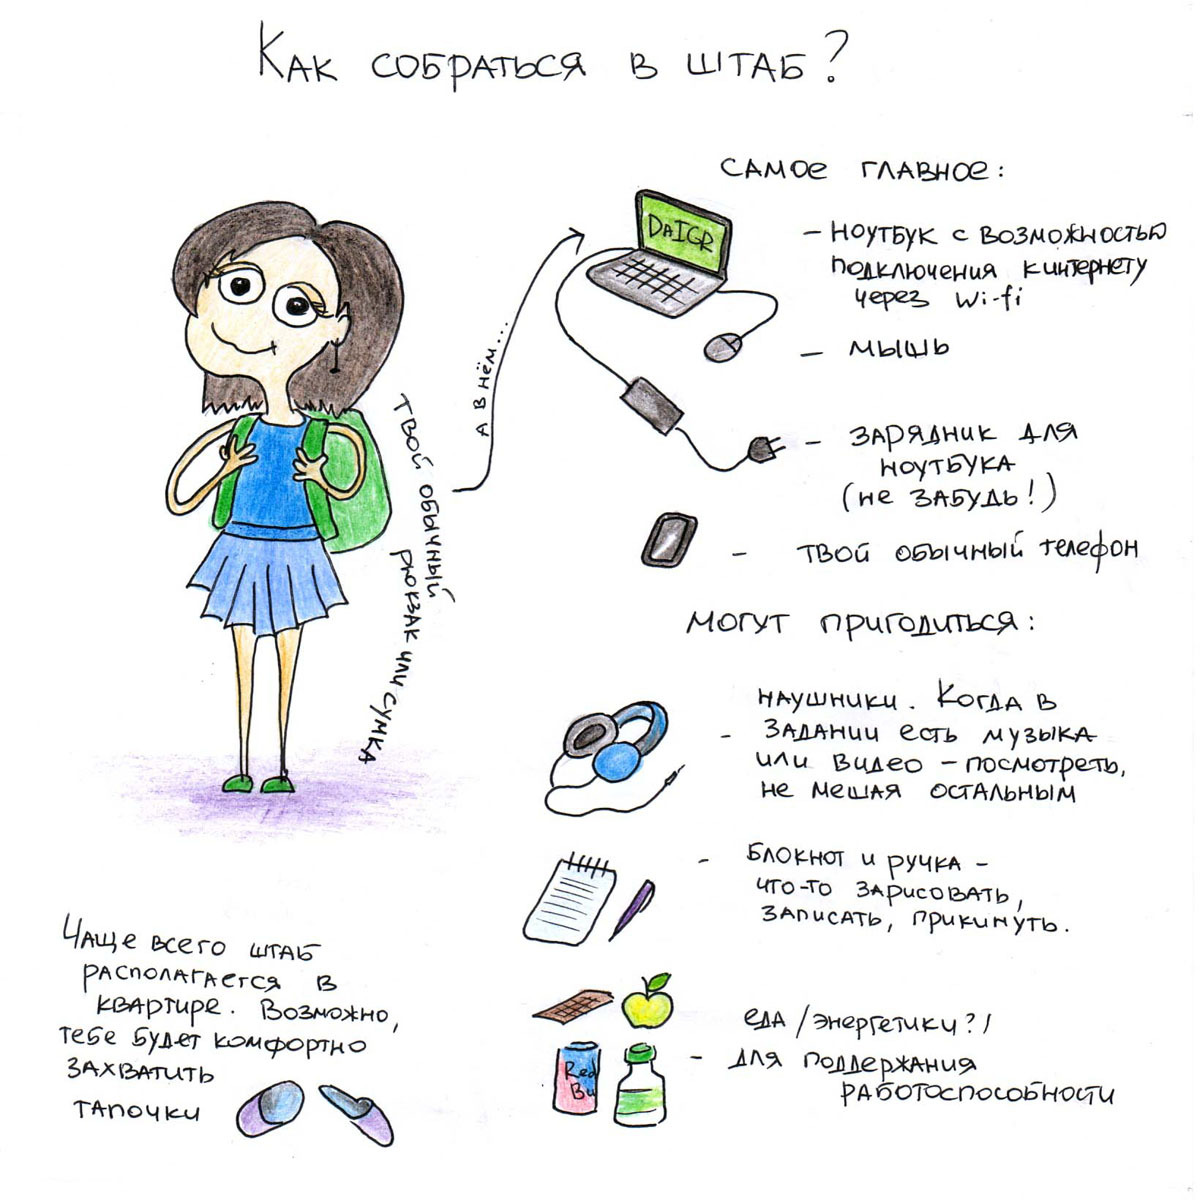 Как собраться в штаб?
самое главное:
DaIGR
– ноутбук с возможностью
подключения к интернету
через Wi-fi
– мышь
– зарядник для
ноутбука
(не забудь!)
– твой обычный телефон
а в нём...
твой обычный
рюкзак или сумка
могут пригодиться:
- наушники. Когда в
задании есть музыка
или видео – посмотреть,
не мешая остальным
- блокнот и ручка –
что-то зарисовать,
записать, прикинуть.
еда/энергетики?!
- для поддержания
работоспособности
Red
Bu
Чаще всего штаб
располагается в
квартире. Возможно,
тебе будет комфортно
захватить
тапочки